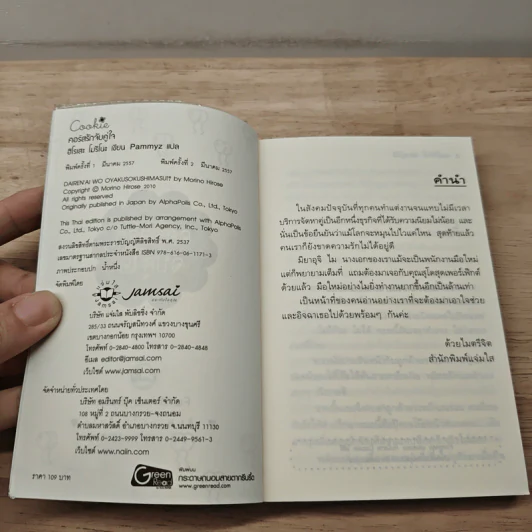 Cookie
คอร์สรักจับคู่ใจ
ฮิโรเสะ โมริโนะ เขียน Pammyz แปล
พิมพ์ครั้งที่ 1 มีนาคม 2557 พิมพ์ครั้งที่ 2 มีนาคม 2557
DAIREN'AI WO OYAKUSOKUSHIMASU!! by Morino Hirose
Copyright © Morino Hirose 2010
All rights reserved
Originally published in Japan by AlphaPolis Co., Ltd., Tokyo
This Thai edition is published by arrangement with AlphaPolis
Co., Ltd., Tokyo c/o Tuttle-Mori Agency, Inc., Tokyo
สงวนลิขสิทธิ์ตามพระราชบัญญัติลิขสิทธิ์ พ.ศ. 2537
เลขมาตรฐานสากลประจำหนังสือ ISBN 978-616-06-1171-3
ภาพประกอบปก น้ำหนึ่ง
จัดพิมพ์โดย
jamsai
บริษัท แจ่มใส พับลิชชิ่ง จำกัด
285/33 ถนนจรัญสนิทวงศ์ แขวงบางขุนศรี
เขตบางกอกน้อย กรุงเทพฯ 10700
โทรศัพท์ 0-2840-4800 โทรสาร 0-2840-4848
อีเมล editor@jamsai.com
เว็บไซต์ www.jamsai.com
จัดจำหน่ายทั่วประเทศโดย
บริษัท อมรินทร์ บุ๊ค เซ็นเตอร์ จำกัด
108 หมู่ที่ 2 ถนนบางกรวย-จงถนอม
ตำบลมหาสวัสดิ์ อำเภอบางกรวย จ.นนทบุรี 11130
โทรศัพท์ 0-2423-9999 โทรสาร 0-2449-9561-3
เว็บไซต์ www.naiin.com
ราคา 109 บาท
Green Read
พิมพ์บน
กระดาษถนอมสายตากรีนรี้ด
www.greenread.com
คำนำ
ในสังคมปัจจุบันที่ทุกคนทำแต่งานจนแทบไม่มีเวลา
บริการจัดหาคู่เป็นอีกหนึ่งธุรกิจที่ได้รับความนิยมไม่น้อย และ
นั่นเป็นข้อยืนยันว่าแม้โลกจะหมุนไปไวแค่ไหน สุดท้ายแล้ว
คนเราก็ยังขาดความรักไม่ได้อยู่ดี
มิยาอุจิ ไม นางเอกของเราแม้จะเป็นพนักงานมือใหม่
แต่ก็พยายามเต็มที่ แถมต้องมาเจอกับคุณสุโดสุดเพอร์เฟ็กต์
ด้วยแล้ว มือใหม่อย่างไมยิ่งทำงานยากขึ้นอีกเป็นล้านเท่า
เป็นหน้าที่ของคนอ่านอย่างเราที่จะต้องมาเอาใจช่วย
และอิจฉาเธอไปด้วยพร้อมๆ กันค่ะ
ด้วยไมตรีจิต
สำนักพิมพ์แจ่มใส